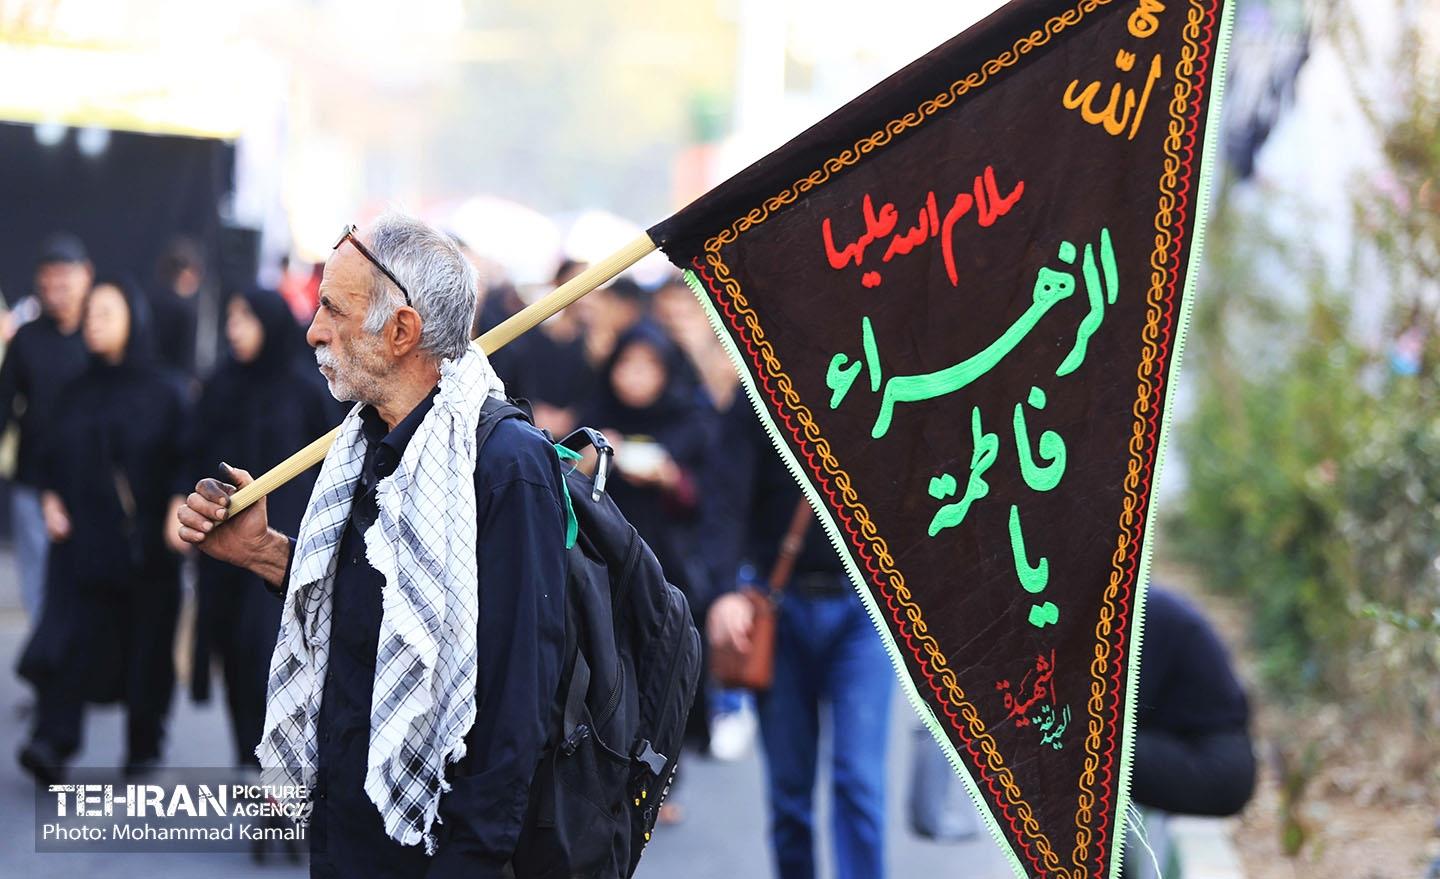 الله
سلام الله علیها
الزهراء
فاطمة
یا
الشهیدة
الصدیقة
TEHRAN PICTURE AGENCY
Photo: Mohammad Kamali